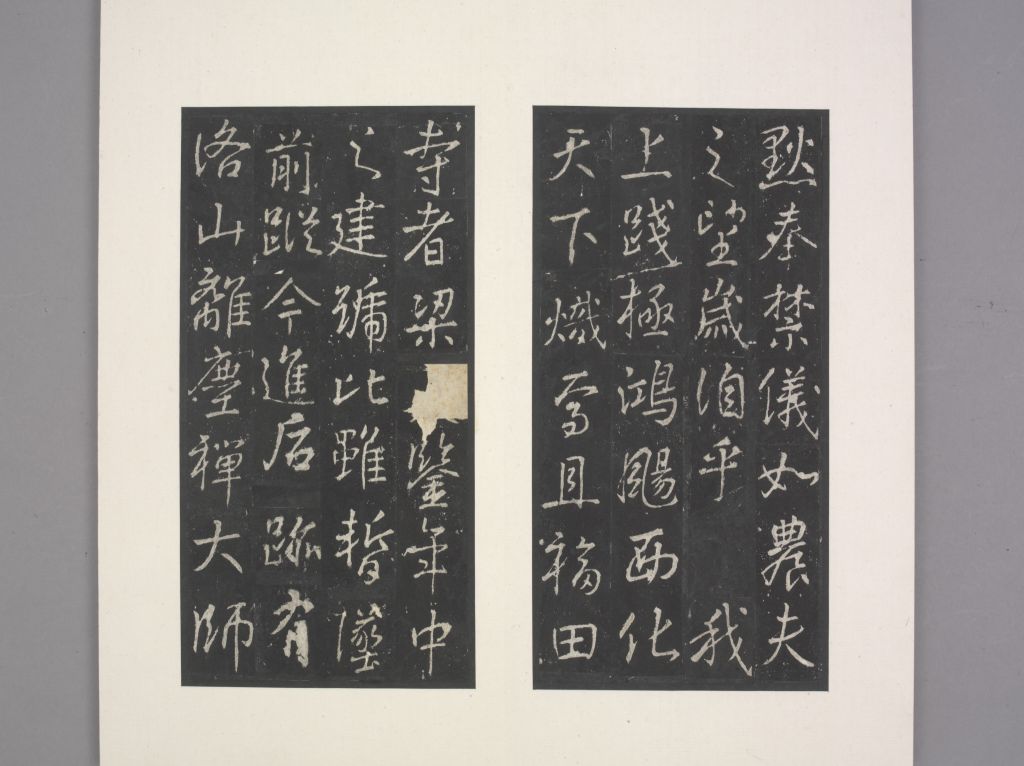 黜秦禁儀如農夫
之望歲洎乎我
上踐極鴻颺西化
天下熾焉且福田
寺者梁鑒年中
之建號比雖暫墜
前蹤今進后跡有
洛山離塵禪大師